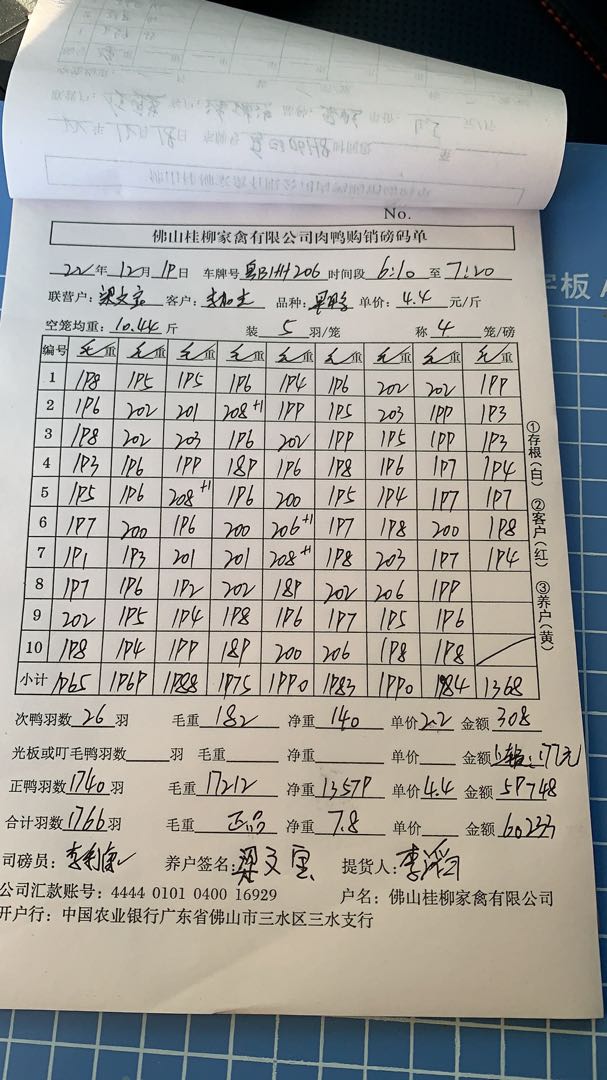 No.
佛山桂柳家禽有限公司肉鸭购销磅码单
22年12月19日 车牌号 时间段 6:10 至 7:20
联营户: 客户: 品种: 单价: 4.4 元/斤
空笼均重: 10.44 斤 装 5 羽/笼 称 4 笼/磅
编号 毛/重 毛/重 毛/重 毛/重 毛/重 毛/重 毛/重 毛/重 毛/重
1 198 195 195 196 194 196 202 202 199
2 196 202 201 208+1 199 195 203 199 193
3 198 202 203 196 202 199 195 199 193
4 193 196 199 189 196 198 196 197 194
5 195 196 208+1 196 200 195 194 197 197
6 197 200 196 200 206+1 197 198 200 198
7 191 193 201 201 208+1 198 203 197 194
8 197 196 192 202 189 202 206 199
9 202 195 194 198 196 197 195 196
10 198 194 199 189 200 206 198 198
小计 1965 1969 1988 1975 1990 1983 1990 1984 1368
①存根(白) ②客户(红) ③养户(黄)
次鸭羽数 26 羽 毛重 182 净重 140 单价 2.2 金额 308
光板或叮毛鸭羽数 羽 毛重 净重 单价 金额 177元
正鸭羽数 1740 羽 毛重 17212 净重 13579 单价 4.4 金额 59748
合计羽数 1766 羽 毛重 正品 净重 7.8 单价 金额 60233
司磅员: 养户签名: 提货人:
公司汇款账号: 4444 0101 0400 16929 户名: 佛山桂柳家禽有限公司
开户行: 中国农业银行广东省佛山市三水区三水支行